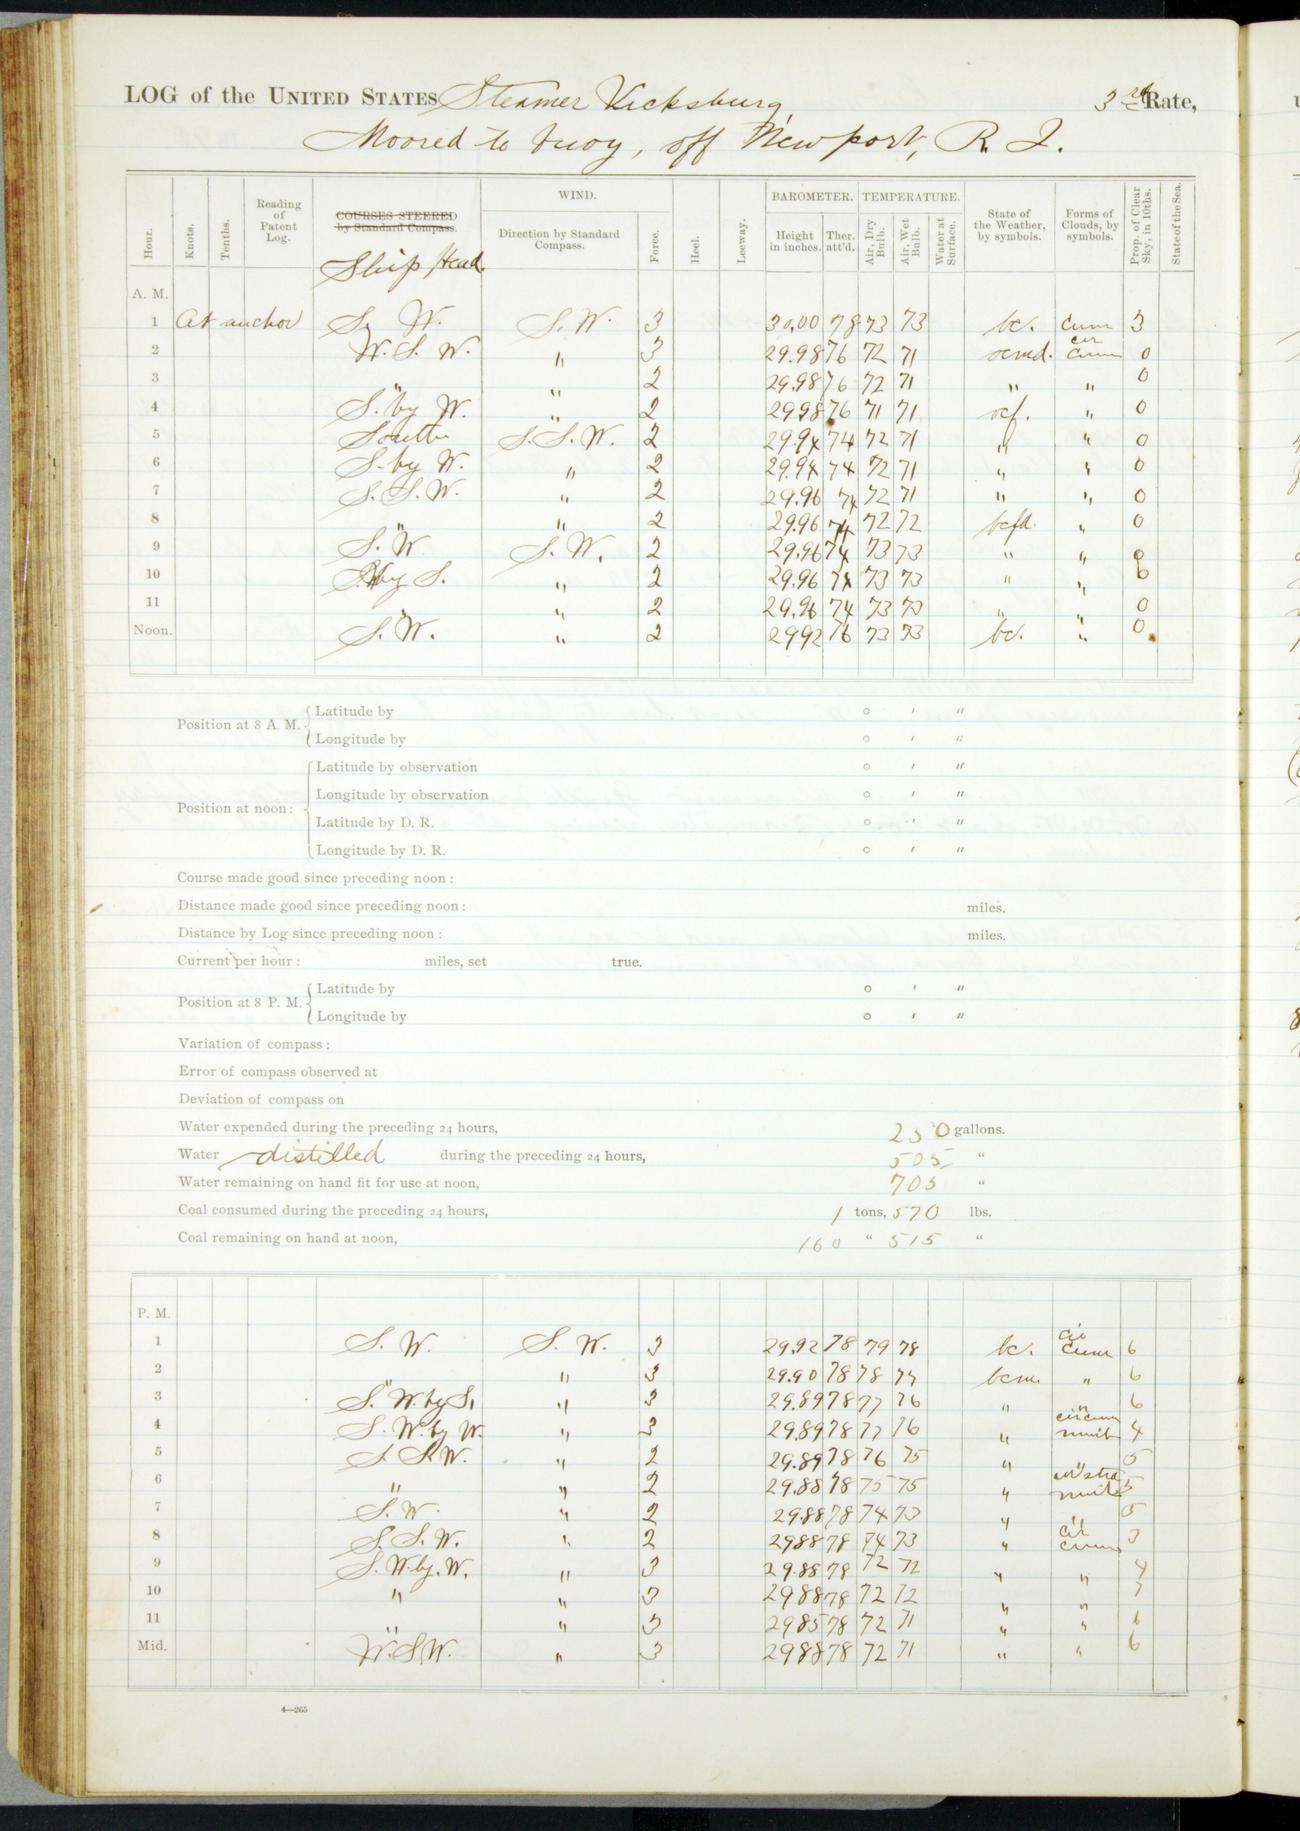 LOG of the UNITED STATES Steamer Vicksburg, 3rd Rate,
Moored to buoy, off Newport, R. I.
Hour. Knots. Tenths. Reading of Patent Log. COURSES STEERED by Standard Compass. Ship Head. WIND. Direction by Standard Compass. Force. Heel. Leeway. BAROMETER. Height in inches. Ther. att'd. TEMPERATURE. Air, Dry Bulb. Air, Wet Bulb. Water at Surface. State of the Weather, by symbols. Forms of Clouds, by symbols. Prop. of Clear Sky, in 10ths. State of the Sea.
A. M.
1 At anchor S. W. S. W. 3 30.00 78 73 73 bc. Cum 3
2 W. S. W. " 3 29.98 76 72 71 ocmd. cir cum 0
3 " " 2 29.98 76 72 71 " " 0
4 S. by W. " 2 29.98 76 71 71 ocf. " 0
5 South S. S. W. 2 29.94 74 72 71 " " 0
6 S. by W. " 2 29.94 74 72 71 " " 0
7 S. S. W. " 2 29.96 74 72 71 " " 0
8 " " 2 29.96 74 72 72 bcfd. " 0
9 S. W. S. W. 2 29.96 74 73 73 " " 0
10 by S. " 2 29.96 74 73 73 " " 0
11 " " 2 29.96 74 73 73 " " 0
Noon. S. W. " 2 29 92 76 73 73 bc. " 0
Position at 8 A. M. Latitude by ° ' "
Longitude by ° ' "
Position at noon: Latitude by observation ° ' "
Longitude by observation ° ' "
Latitude by D. R. ° ' "
Longitude by D. R. ° ' "
Course made good since preceding noon:
Distance made good since preceding noon: miles.
Distance by Log since preceding noon: miles.
Current per hour: miles, set true.
Position at 8 P. M. Latitude by ° ' "
Longitude by ° ' "
Variation of compass:
Error of compass observed at
Deviation of compass on
Water expended during the preceding 24 hours, 250 gallons.
Water distilled during the preceding 24 hours, 505 "
Water remaining on hand fit for use at noon, 705 "
Coal consumed during the preceding 24 hours, 1 tons, 570 lbs.
Coal remaining on hand at noon, 160 " 515 "
P. M.
1 S. W. S. W. 3 29.92 78 79 78 bc. cir cum 6
2 " " 3 29.90 78 78 77 bcm. " 6
3 S. W. by S. " 3 29.89 78 77 76 " " 6
4 S. W. by W. " 3 29.89 78 77 76 " cir cum nimb 4
5 S. S. W. " 2 29.89 78 76 75 " " 5
6 " " 2 29.88 78 75 75 " cir stra nimb 5
7 S. W. " 2 29.88 78 74 73 " " 5
8 S. S. W. " 2 29 88 78 74 73 " cir cum 3
9 S. W. by. W. " 3 29.88 78 72 72 " " 4
10 " " 3 29 88 78 72 72 " " 7
11 " " 3 29 85 78 72 71 " " 6
Mid. W. S. W. " 3 29 88 78 72 71 " " 6
4—265